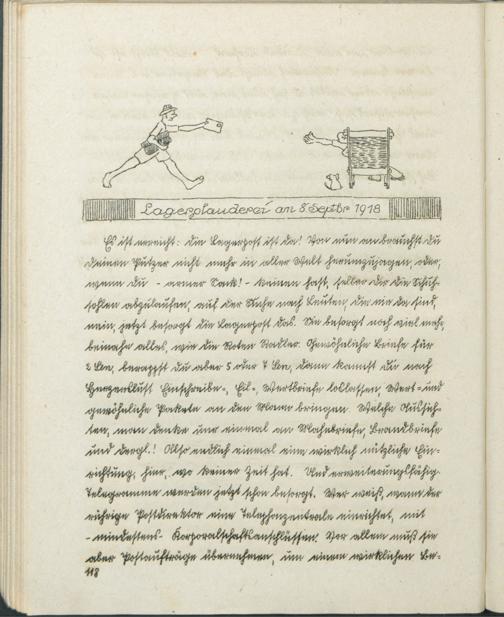 Lagerplauderei am 8. Septbr 1918
Es ist erreicht: die Lagerpost ist da! Von nun an brauchst Du
Deinen Putzer nicht mehr in aller Welt herumzujagen, oder,
wenn du - armer Tank! - keinen hast, selber dir die Schuh-
sohlen abzulaufen, auf der Suche nach Leuten, die nie da sind,
nein, jetzt besorgt die Lagerpost das. Sie besorgt noch viel mehr,
beinahe alles, wie die Roten Radler. Gewöhnliche Briefe für
2 Sen, berappst du aber 5 oder 7 Sen, dann kannst du nach
Herzenslust Einschreibe-, Eil-, Wertbriefe loslassen, Wert- und
gewöhnliche Pakete an den Mann bringen. Welche Aussich-
ten, man denke nur einmal an Mahnbriefe, Brandbriefe
und dergl.! Also endlich einmal eine wirklich nützliche Ein-
richtung, hier, wo keiner Zeit hat. Und erweiterungsfähig.
Telegramme werden jetzt schon besorgt. Wer weiß, wann der
rührige Postdirektor eine Telephonzentrale einrichtet, mit
- mindestens - Korporalschaftsanschlüssen. Vor allem muß sie
aber Postaufträge übernehmen, um einem wirklichen Be-
118